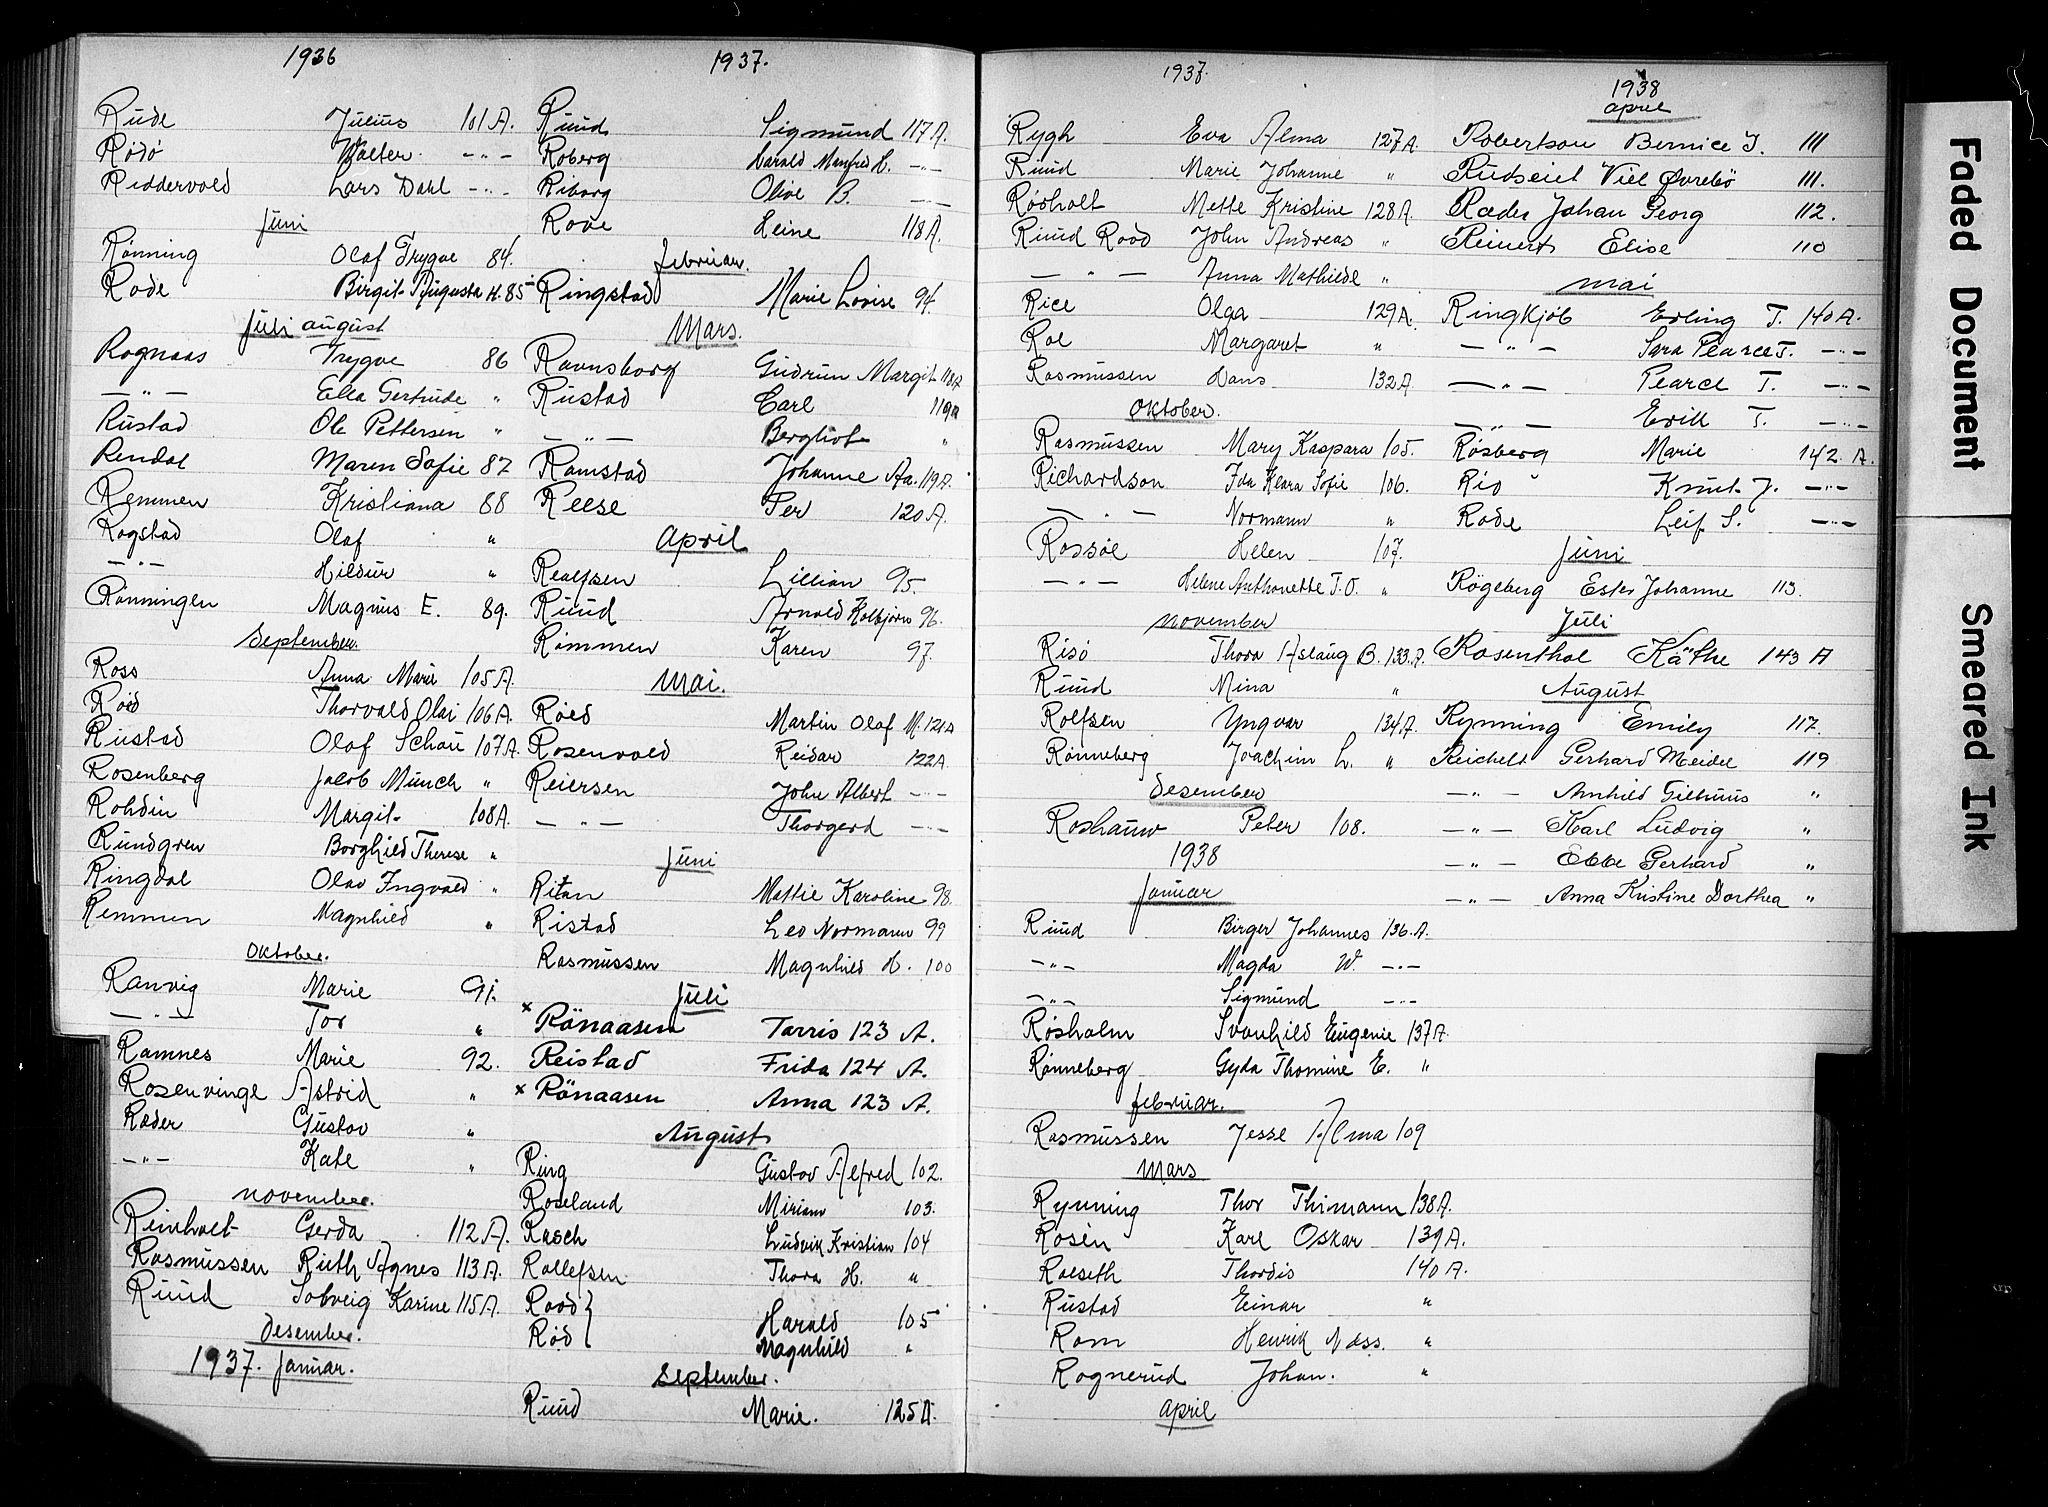 1936
Rude Julius 101 A.
Rödö Walter. -"-
Riddervold Lars Dahl -"-
Juni
Rønning Olaf Trygve 84.
Rode Birgit Augusta H. 85
Juli august
Rognaas Trygve 86
-"- Ella Gertrude "
Rustad Ole Pettersen "
Rendal Maren Sofie 87
Remmen Kristiana 88
Rogstad Olaf "
-"- Hildur "
Rønningen Magnus E. 89.
September.
Ross Anna Marie 105 A.
Röed Thorvald Olai 106 A.
Rustad Olaf Schou 107 A.
Rosenberg Jacob Munch "
Rohdin Margit 108 A.
Rundgren Borghild Therese "
Ringdal Olav Ingvald "
Remmen Magnhild "
Oktober.
Ranvig Marie 91.
-"- Tor "
Ramnes Marie 92.
Rosenvinge Astrid "
Rader Gustav "
-"- Kate "
november.
Reinholt Gerda 112 A.
Rasmussen Ruth Agnes 113 A.
Ruud Solveig Karine 115 A.
Desember.
1937. Januar.
1937.
Ruud Sigmund 117 A.
Roberg Harald Manfred H. -"-
Riborg Olive B. -"-
Rove Leine 118 A.
februar.
Ringstad Marie Lovise 94.
Mars.
Ravnsborg Gudrun Margit 118 A
Rustad Carl 119 A
-"- Bergliot "
Ramstad Johanne Aa. 119 A.
Reese Per 120 A.
April
Realfsen Lillian 95.
Ruud Arnold Kolbjørn 96.
Rømmen Karen 97.
Mai.
Röed Martin Olaf M. 121 A
Rosenvold Reidar 122 A.
Reiersen John Albert -"-
-"- Thorgerd -"-
Juni
Ritan Mattie Karoline 98.
Ristad Leo Normann 99
Rasmussen Magnhild H. 100
Juli
x Rönaasen Tarris 123 A.
Reistad Frida 124 A.
x Rönaasen Anna 123 A.
August
Ring Gustav Alfred 102.
Roseland Miriam 103.
Rasch Ludvik Kristian 104
Rollefsen Thora H. "
Rood} Harald 105
Röd} Magnhild "
September.
Ruud Marie. 125 A.
1937.
Rygh Eva Alma 127 A.
Ruud Marie Johanne "
Rösholt Mette Kristine 128 A.
Ruud Rood John Andreas "
-"- Anna Mathilde "
Rice Olga 129 A.
Roe Margaret "
Rasmussen Hans 132 A.
Oktober.
Rasmussen Mary Kaspara 105.
Richardson Ida Klara Sofie 106.
-"- Normann "
Rossöe Helen 107.
-"- Helene Anthonette T.O. "
november
Risö Thora Aslaug B. 133. A.
Ruud Mina "
Rolfsen Yngvar 134 A.
Rønneberg Joachim L. "
Desember
Roshauw Peter 108.
1938
Januar
Ruud Birger Johannes 136. A.
-"- Magda W. -"-
-"- Sigmund -"-
Røsholm Svanhild Eugenie 137 A.
Rønneberg Gyda Thomine E. "
februar.
Rasmussen Jesse Alma 109
Mars
Rynning Thor Thimann 138 A.
Rosén Karl Oskar 139 A.
Roeseth Thordis 140 A.
Rustad Einar "
Rom Henrik Næss. "
Rognerud Johan. "
April
1938
april
Robertson Bernice J. 111
Rudseiet Viel Øvrebö 111.
Ræder Johan Georg 112.
Reinert Elise 110
mai
Ringkjöb Erling T. 140 A.
-"- Sara Pearce T. -"-
-"- Pearce T. -"-
-"- Erik T. -"-
Rösberg Marie 142. A.
Rio Knut J. -"-
Rode Leif S. -"-
Juni
Rögeberg Ester Johanne 113.
Juli
Rosenthal Käthe 143 A
August
Rynning Emily 117.
Reichelt Gerhard Meidel 119
-"- Arnhild Gilhuus "
-"- Karl Ludvig "
-"- Ebbe Gerhard "
-"- Anna Kristine Dorthea "
Faded Document
Smeared Ink